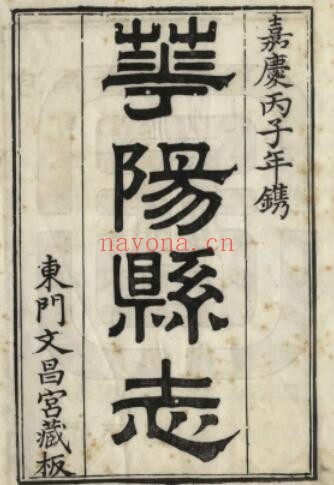 嘉慶丙子年鐫
華陽縣志
東門文昌宮藏板
nayona.cn